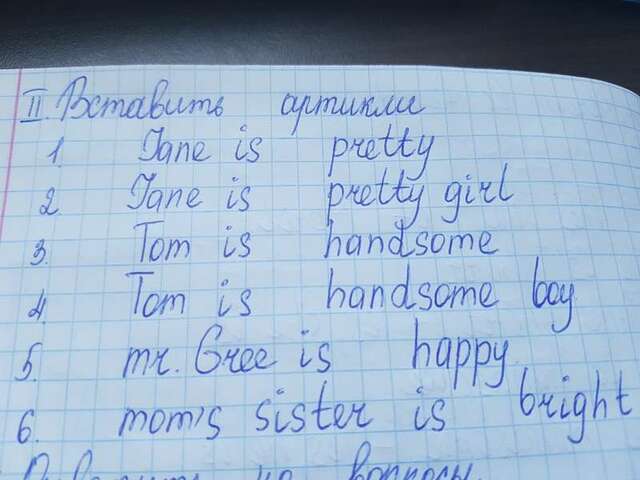 II. Вставить артикли
1. Jane is pretty
2. Jane is pretty girl
3. Tom is handsome
4. Tom is handsome boy
5. mr. Gree is happy
6. mom's sister is bright
на вопросы